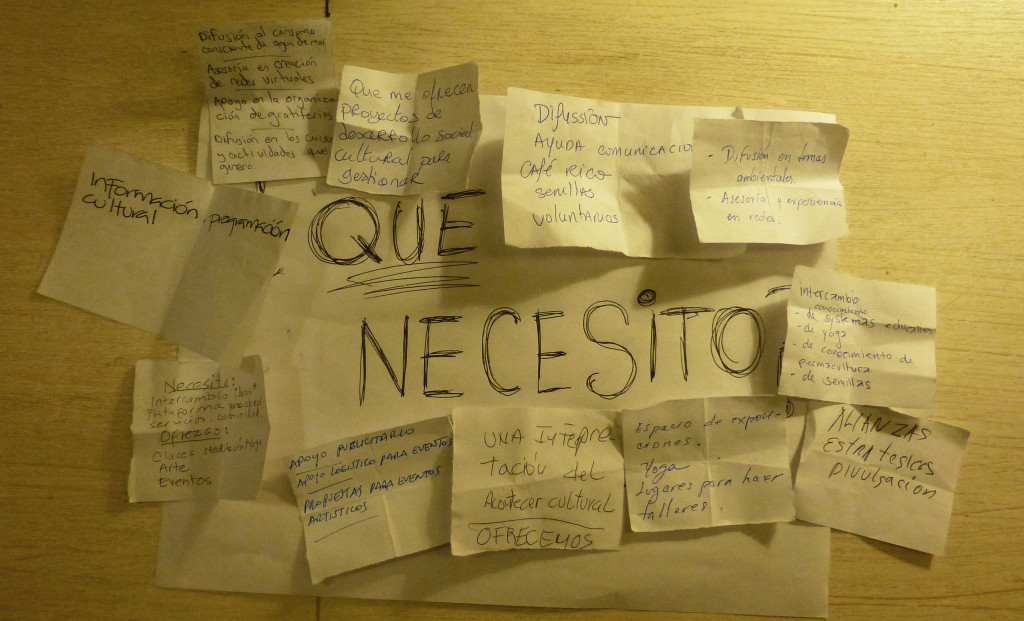 Difusión al consumo
consciente de agua de mar
Asesoría en creación
de redes virtuales
Apoyo en la organiza
ción de gratiferias
Difusión en los cursos
y actividades que
genero.
Que me ofrecen
proyectos de
desarrollo social
cultural para
gestionar
Difussión
Ayuda comunicacio
Café rico
semillas
voluntarios
- Difusión en temas
ambientales.
- Asesoría y experiencia
en redes.
Información
cultural
, programación
QUE
NECESITO
intercambio
conocimiento
- de sistemas educativos
- de yoga
- de conocimiento de
permacultura
- de semillas
Necesito:
Intercambio ideas
Plataforma
servicios comunidad
Ofrezco:
Clases
Arte
Eventos
APOYO PUBLICITARIO
APOYO LOGISTICO PARA EVENTOS
PROPUESTAS PARA EVENTOS
ARTISTICOS
UNA Interpre
tación del
Acontecer cultural
OFRECEMOS
Espacio de exposi-
ciones.
Yoga
Lugares para hacer
talleres.
ALIANZAS
ESTRATEGICAS
Divulgacion